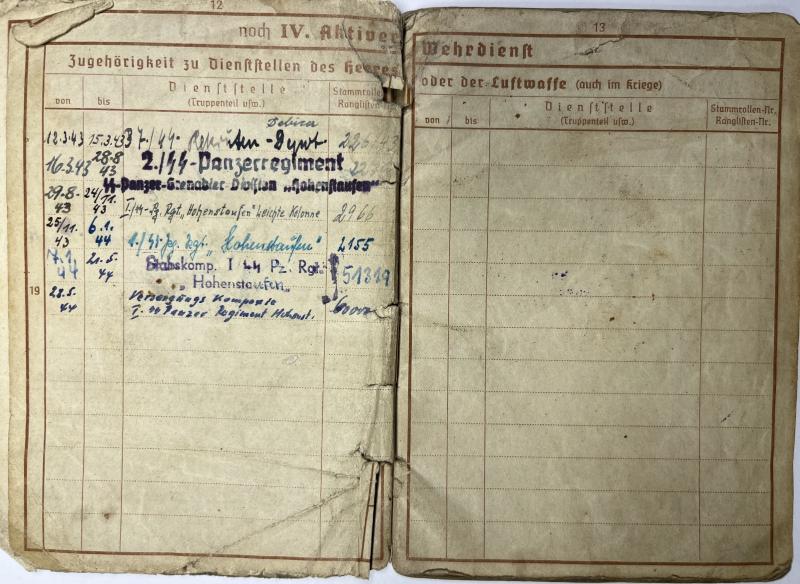 12
noch IV. Aktiver
Zugehörigkeit zu Dienststellen des Heeres
von
bis
Dienststelle
(Truppenteil usw.)
Stammrollen-
Ranglisten-Nr.
12.3.43 15.3.43 Debica
/SS- Rekruten-
16.3.43 28.8 43 2./SS-Panzerregiment
SS-Panzer-Grenadier-Division „Hohenstaufen"
29.8. 43 24/11. 43 I/SS-Pz. Rgt. „Hohenstaufen" Leichte Kolonne 2966
25/11. 43 6.1. 44 1./SS-Pz. Rgt. „Hohenstaufen" 2155
7.1. 44 21.5. 44 Stabskomp. I SS Pz. Rgt. 51319
„Hohenstaufen"
19
22.5. 44 Versorgungs Kompanie
I. SS Panzer Regiment Hohenst.
13
Wehrdienst
oder der Luftwaffe (auch im Kriege)
von
bis
Dienststelle
(Truppenteil usw.)
Stammrollen-Nr.
Ranglisten-Nr.